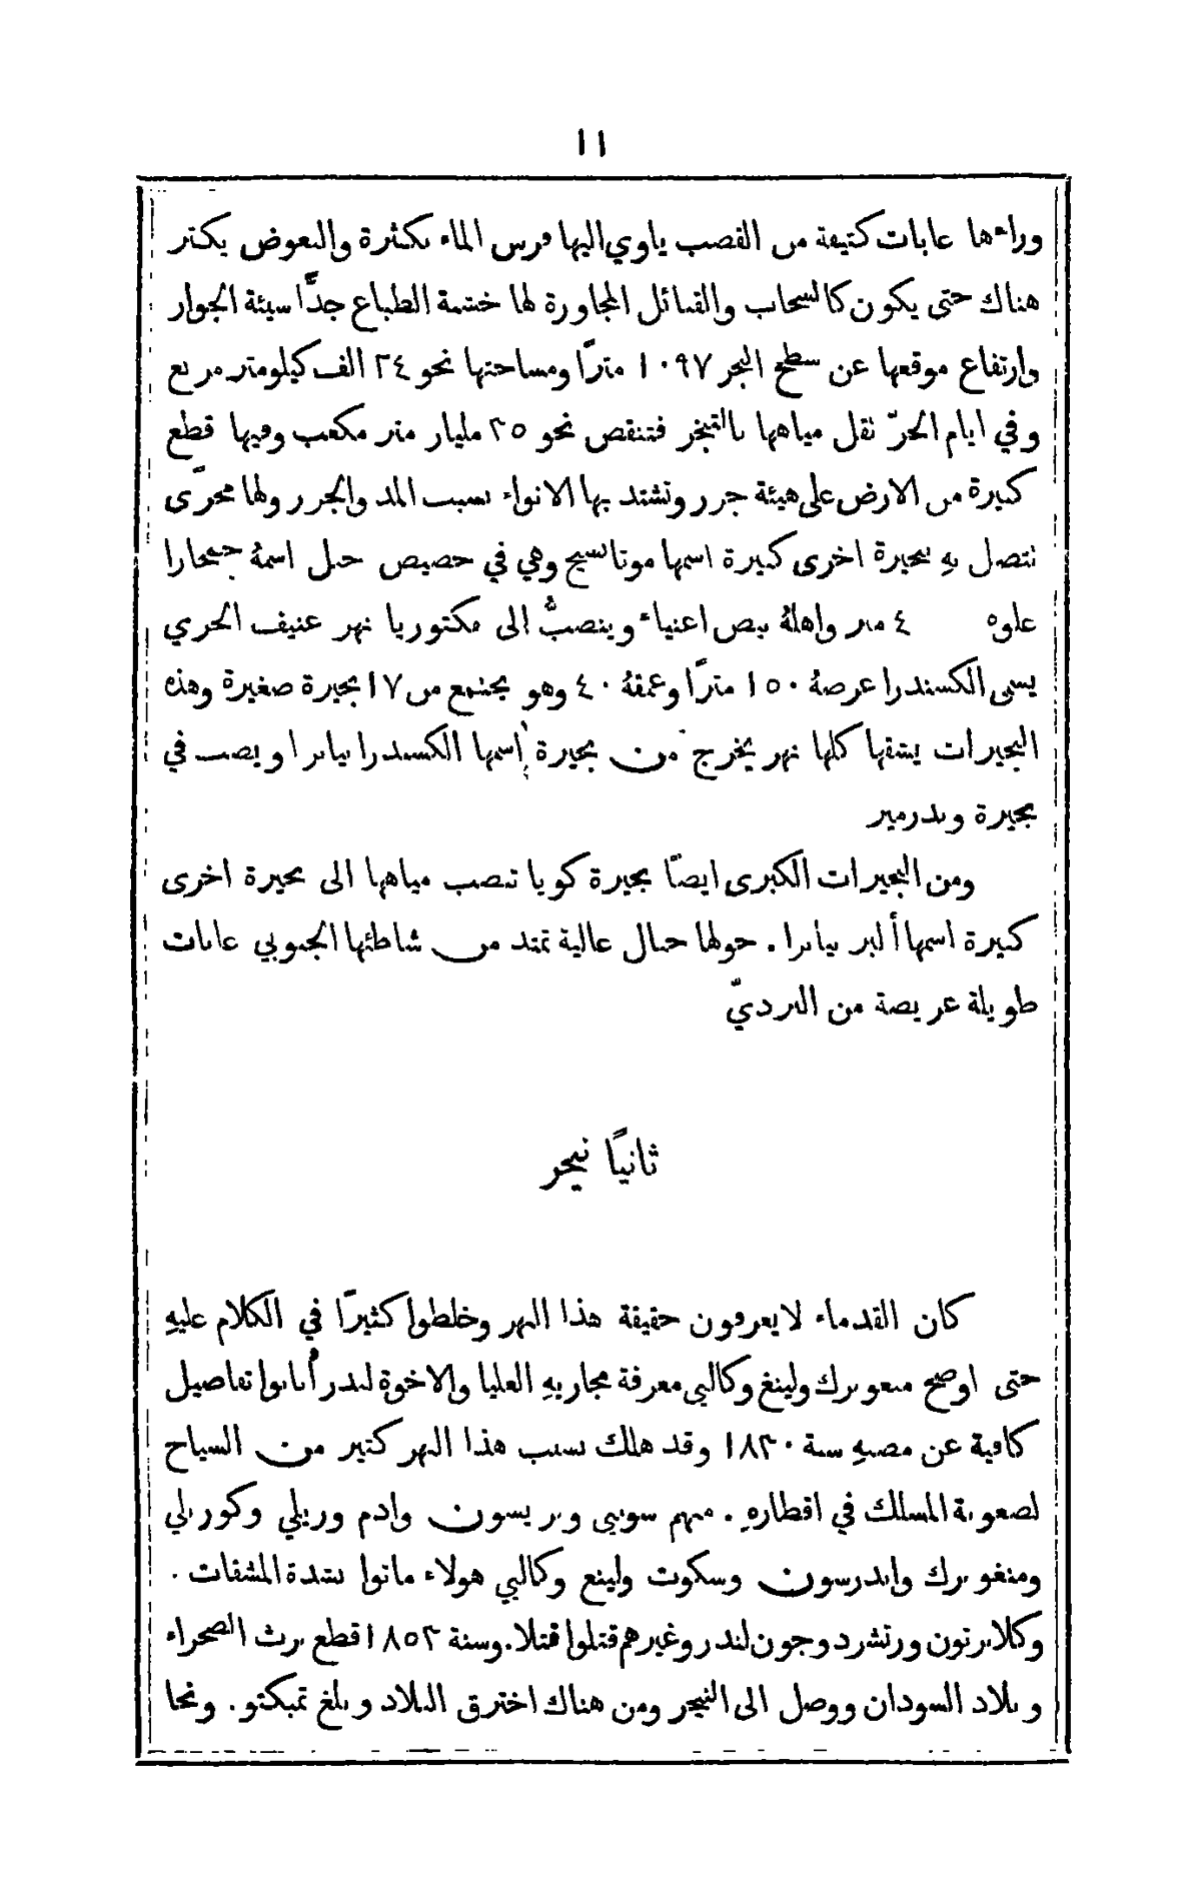 ١١
وراءها غابات كثيفة من القصب ياوي اليها فرس الماء بكثرة والبعوض يكثر
هناك حتى يكون كالسحاب والقبائل المجاورة لها خشنة الطباع جدًّا سيئة الجوار
وارتفاع موقعها عن سطح البحر ١٠٩٧ مترًا ومساحتها نحو ٢٤ الف كيلومتر مربع
وفي ايام الحرّ تقل مياهها بالتبخر فتنقص نحو ٢٥ مليار متر مكعب وفيها قطع
كبيرة من الارض على هيئة جزر وتشتد بها الانواء بسبب المد والجزر ولها مجرًى
تتصل بهِ ببحيرة اخرى كبيرة اسمها موتا نسيج وهي في حضيض جبل اسمهُ جبحارا
علوه ٤ متر واهلهُ بيض اغنياء وينصبُّ الى فكتوريا نهر عنيف الجري
يسمى الكسندرا عرضهُ ١٥٠ مترًا وعمقهُ ٤٠ وهو يجتمع من ١٧ بحيرة صغيرة وهذه
البحيرات يشقها كلها نهر يخرج من بحيرة اسمها الكسندرا نيانزا ويصب في
بحيرة وندرمير
ومن البحيرات الكبرى ايضًا بحيرة كويا تنصب مياهها الى بحيرة اخرى
كبيرة اسمها ألبر نيانزا . حولها جبال عالية تمتد من شاطئها الجنوبي غابات
طويلة عريضة من البرديّ
ثانيًا نيجر
كان القدماء لا يعرفون حقيقة هذا النهر وخلطوا كثيرًا في الكلام عليهِ
حتى اوضح منغوبرك ولينغ وكاليي معرفة مجاريهِ العليا والاخوة لندر أبانوا تفاصيل
كافية عن مصبهِ سنة ١٨٣٠ وقد هلك بسبب هذا النهر كثير من السياح
لصعوبة المسلك في اقطارهِ . منهم سويني وبريسون وادم وريلي وكوربلي
ومنغوبرك واندرسون وسكوت ولينغ وكاليي هولاء ماتوا بشدة المشقات .
وكلابرتون ورتشرد وجون لندر وغيرهم قتلوا قتلا . وسنة ١٨٥٣ قطع برث الصحراء
وبلاد السودان ووصل الى النيجر ومن هناك اخترق البلاد وبلغ تمبكتو . ونحا